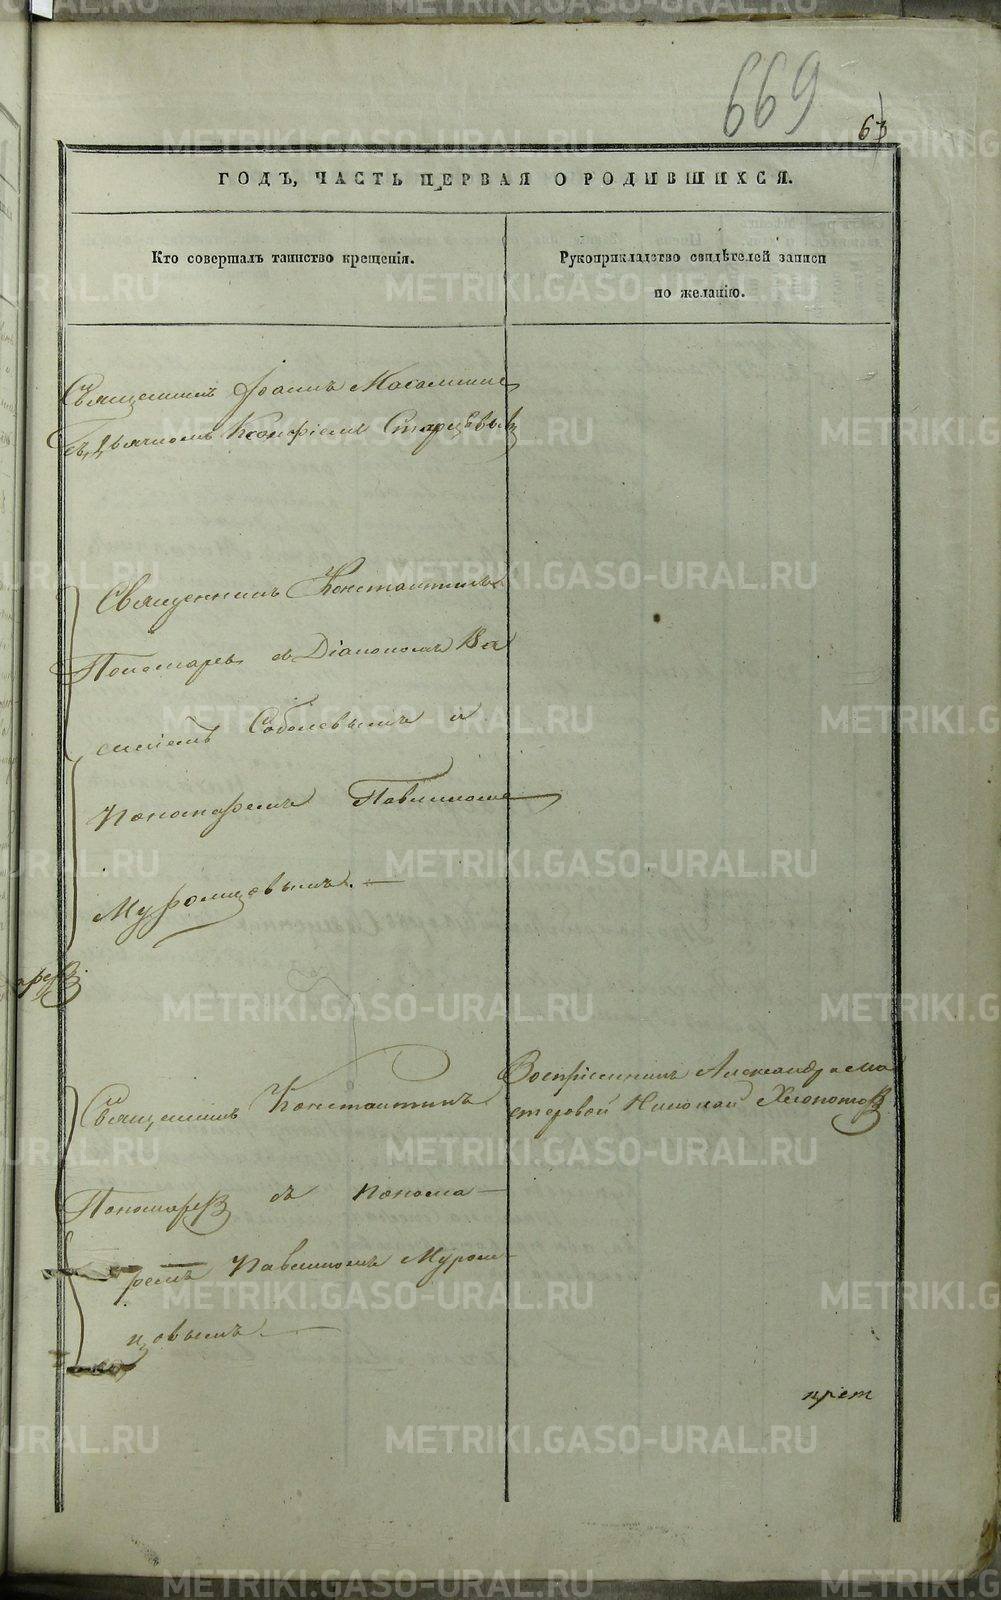 669
63
ГОДЪ, ЧАСТЬ ПЕРВАЯ О РОДИВШИХСЯ.
Кто совершалъ таинство крещенія.
Рукоприкладство свидѣтелей записи
по желанію.
Священникъ Іоаннъ
съ Дьячкомъ Старцевымъ
Священникъ Константинъ
Пономаревъ съ Діакономъ Ва
силіемъ Соболевымъ и
Пономаремъ Павлиномъ
Муромцовымъ.
Священникъ Константинъ
Пономаревъ съ понома-
ремъ Павлиномъ Муром-
цовымъ.
Воспріемникъ Александр ма
стеровой Николай Хлопотовъ
прет
METRIKI.GASO-URAL.RU